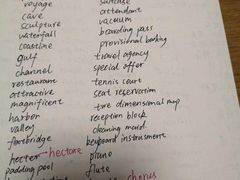 voyage
cave
sculpture
waterfall
coastline
gulf
channel
restaurant
attractive
magnificent
harbor
valley
footbridge
hecter → hectare
padding pool
suitcase
attendant
vacuum
boarding pass
provisional booking
travel agency
special offer
tennis court
seat reservation
three dimensional map
reception block
cleaning maid
keyboard instrument
piano
flute
chorus